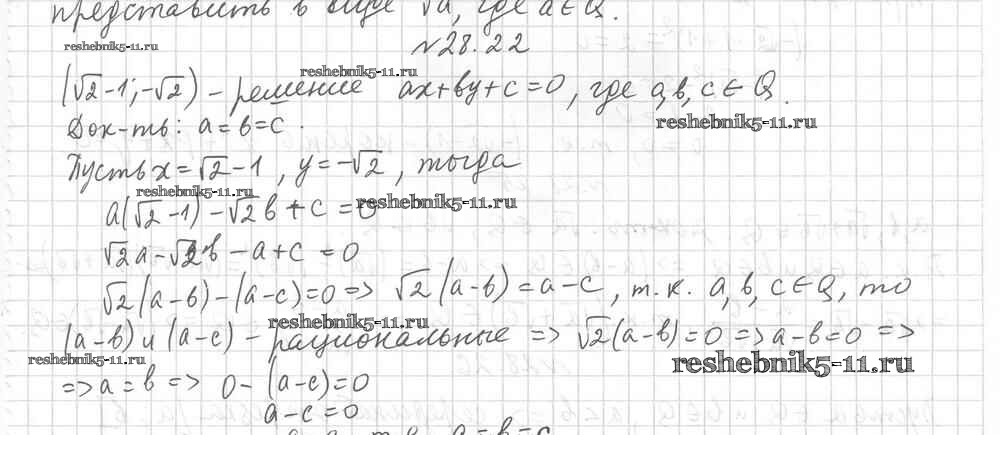 представить в виде √a, где a ∈ Q.
reshebnik5-11.ru
№28.22
reshebnik5-11.ru
(√2-1; -√2) - решение ax+by+c=0, где a,b,c ∈ Q.
reshebnik5-11.ru
Док-ть: a=b=c.
Пусть x=√2-1, y=-√2, тогда
reshebnik5-11.ru
a(√2-1)-√2b+c=0
reshebnik5-11.ru
√2a-√2b-a+c=0
√2(a-b)-(a-c)=0 => √2(a-b)=a-c, т.к. a,b,c ∈ Q, то
reshebnik5-11.ru
(a-b) и (a-c) - рациональные => √2(a-b)=0 => a-b=0 =>
reshebnik5-11.ru
reshebnik5-11.ru
=> a=b => 0-(a-c)=0
a-c=0
a=b=c